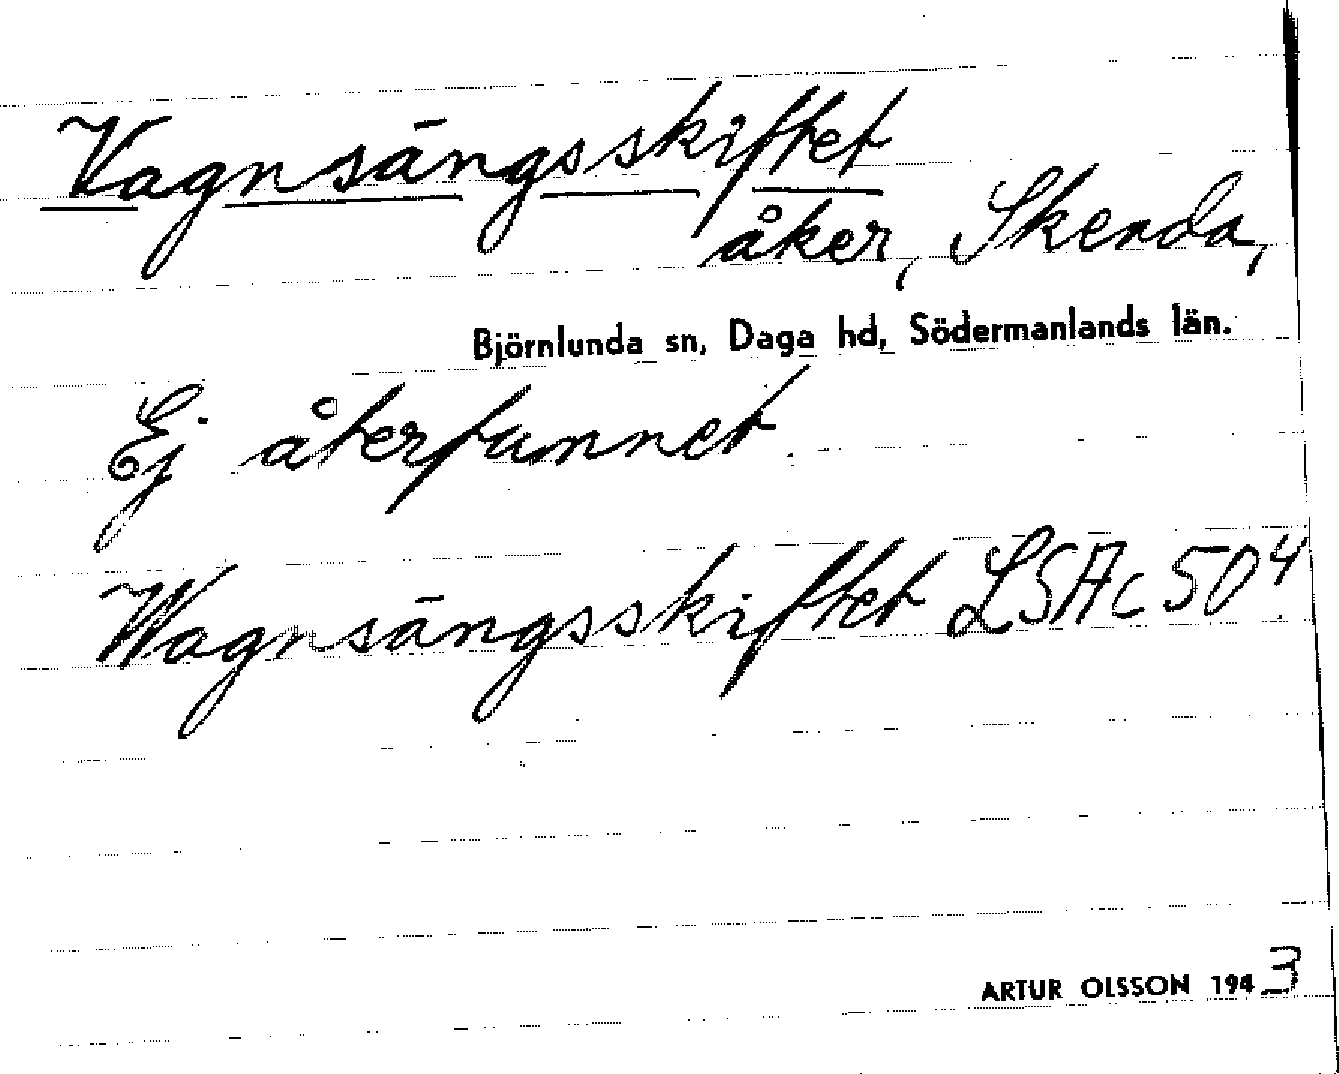 Vagnsängsskiftet
åker, Skenda,
Björnlunda sn, Daga hd, Södermanlands län.
Ej återfunnet.
Wagnsängsskiftet LSAc 504
ARTUR OLSSON 1943